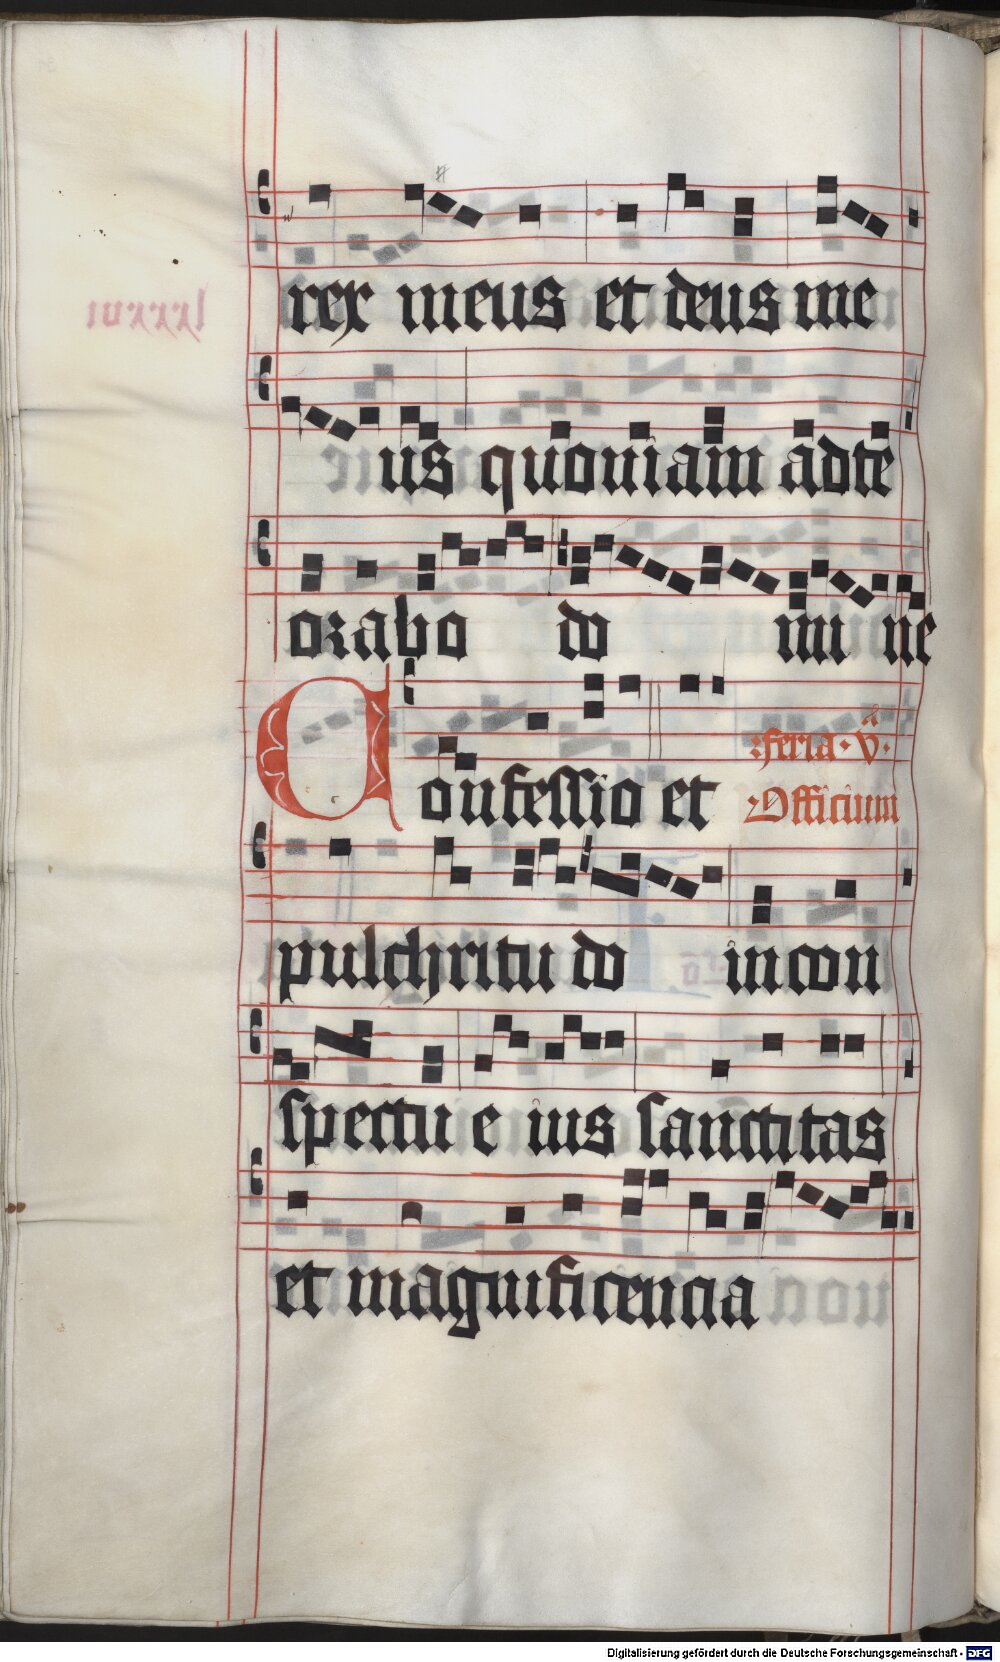 rex meus et deus me
us quoniam ad te
orabo do mi ne
Confessio et
:feria · v̈ ·
Officium
pulchritu do in con
spectu e ius sanctitas
et magnificencia
Digitalisierung gefördert durch die Deutsche Forschungsgemeinschaft - DFG